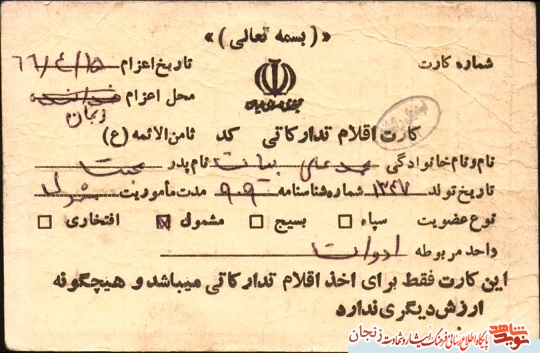 «( بسمه تعالی )»
شماره کارت
تاریخ اعزام ۶۶/۴/۱۵
محل اعزام
زنجان
جمهوری اسلامی ایران
کارت اقلام تدارکاتی کد ثامن الائمه (ع)
نام و نام خانوادگی محمد علی بیات نام پدر محبت
تاریخ تولد ۱۳۴۷ شماره شناسنامه ۹۰۹ مدت مأموریت
نوع عضویت سپاه □ بسیج □ مشمول ☒ افتخاری □
واحد مربوطه ادوات
این کارت فقط برای اخذ اقلام تدارکاتی میباشد و هیچگونه
ارزش دیگری ندارد
نوید شاهد
پایگاه اطلاع رسانی فرهنگ ایثار و شهادت زنجان